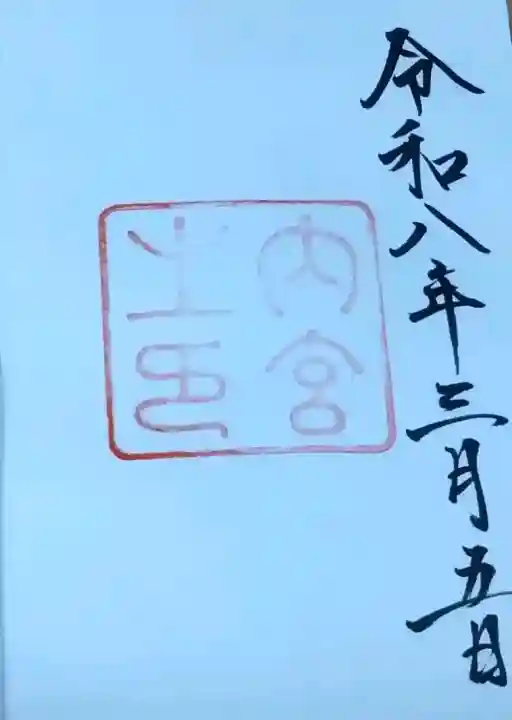 令和八年三月五日
内宮
之印